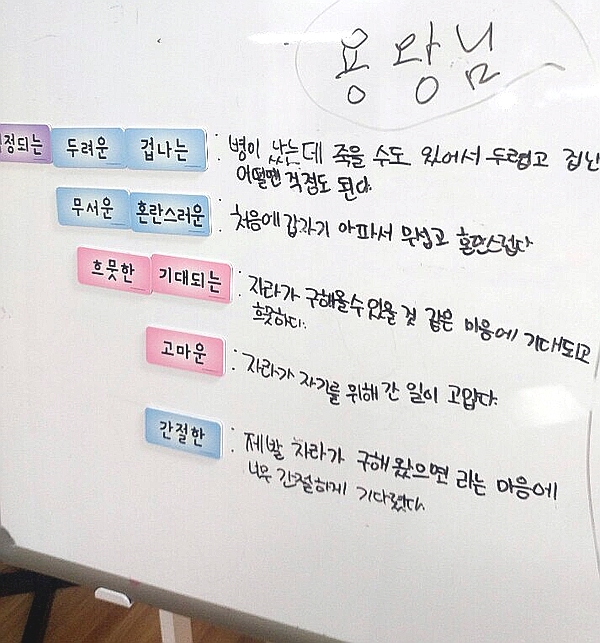 용왕님
정되는 두려운 겁나는 : 병이 났는데 죽을 수도 있어서 두렵고 겁난
어떨땐 걱정도 된다.
무서운 혼란스러운 : 처음에 갑자기 아파서 무섭고 혼란스럽다
흐뭇한 기대되는 : 자라가 구해올수 있을 것 같은 마음에 기대되고
흐뭇하다.
고마운 : 자라가 자기를 위해 간 일이 고맙다.
간절한 : 제발 자라가 구해 왔으면 라는 마음에
너무 간절하게 기다렸다.